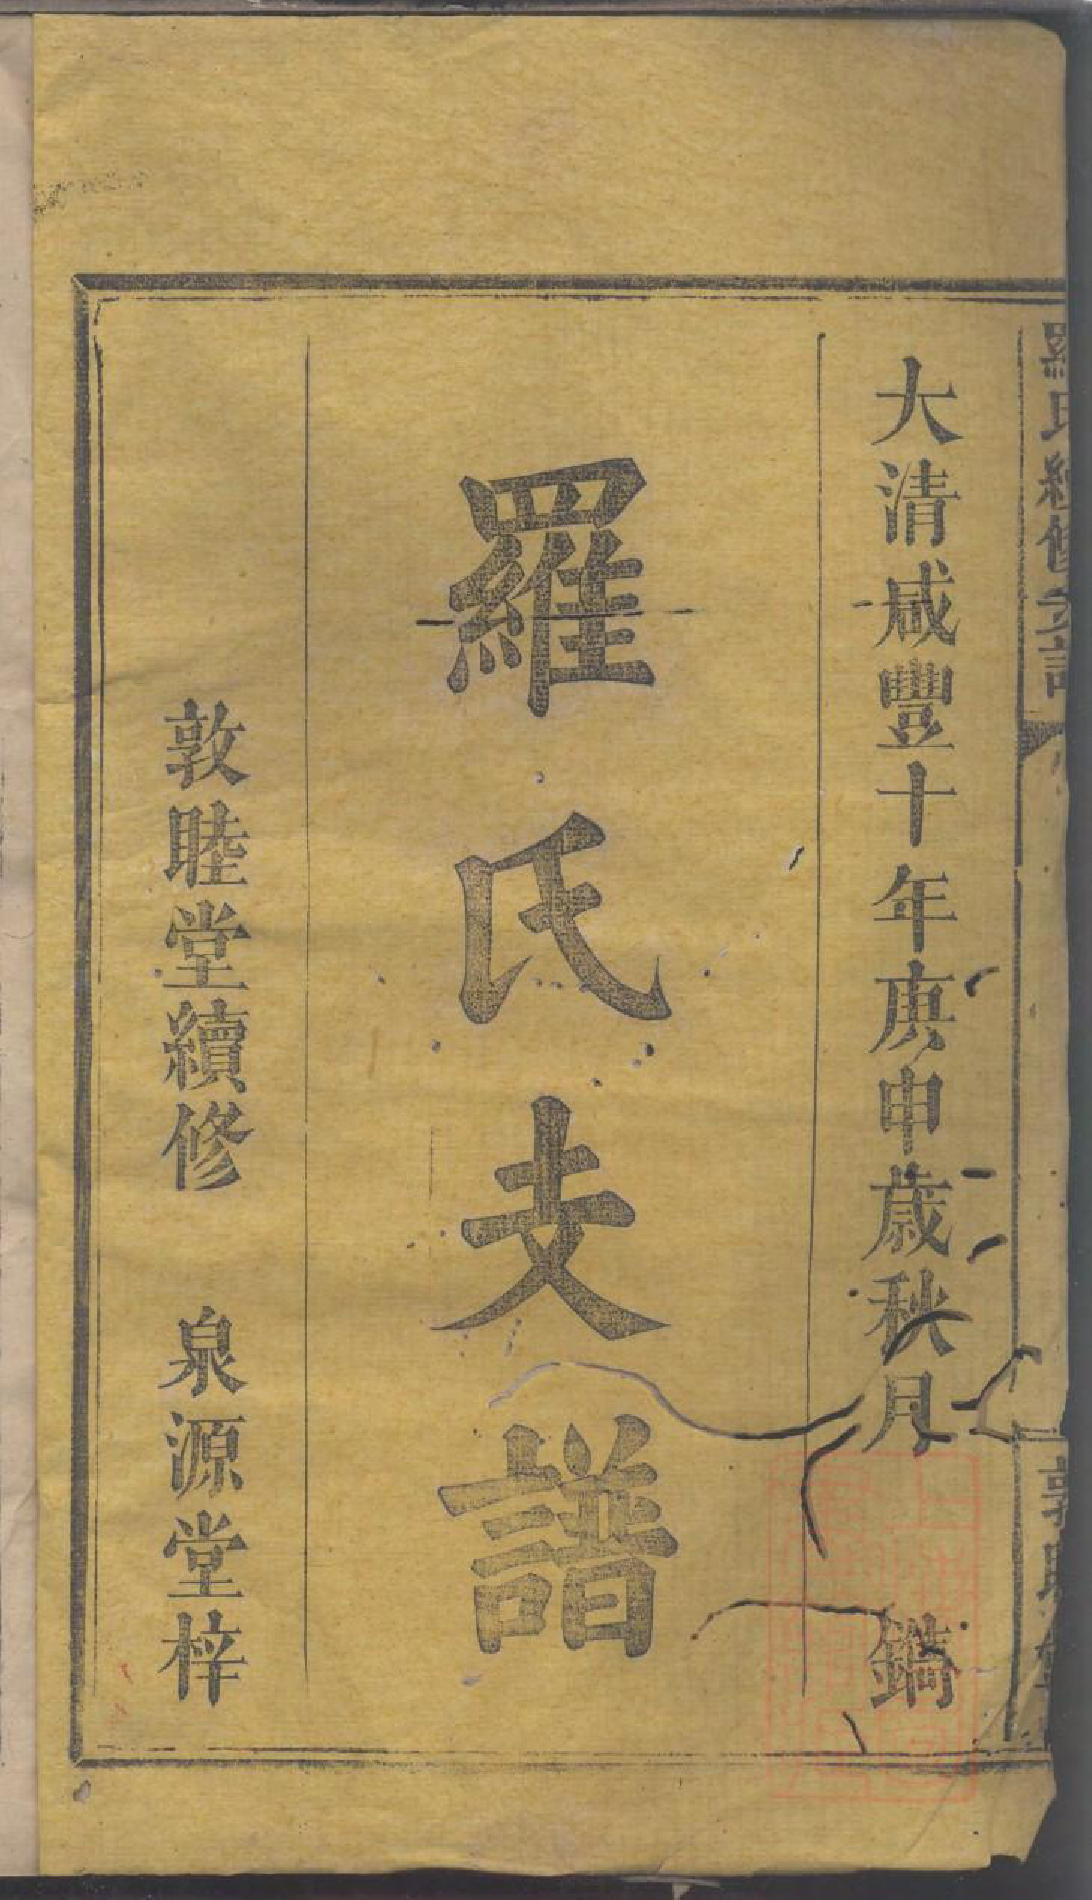 大清咸豐十年庚申歲秋月 鐫
羅氏支譜
敦睦堂續修 泉源堂梓